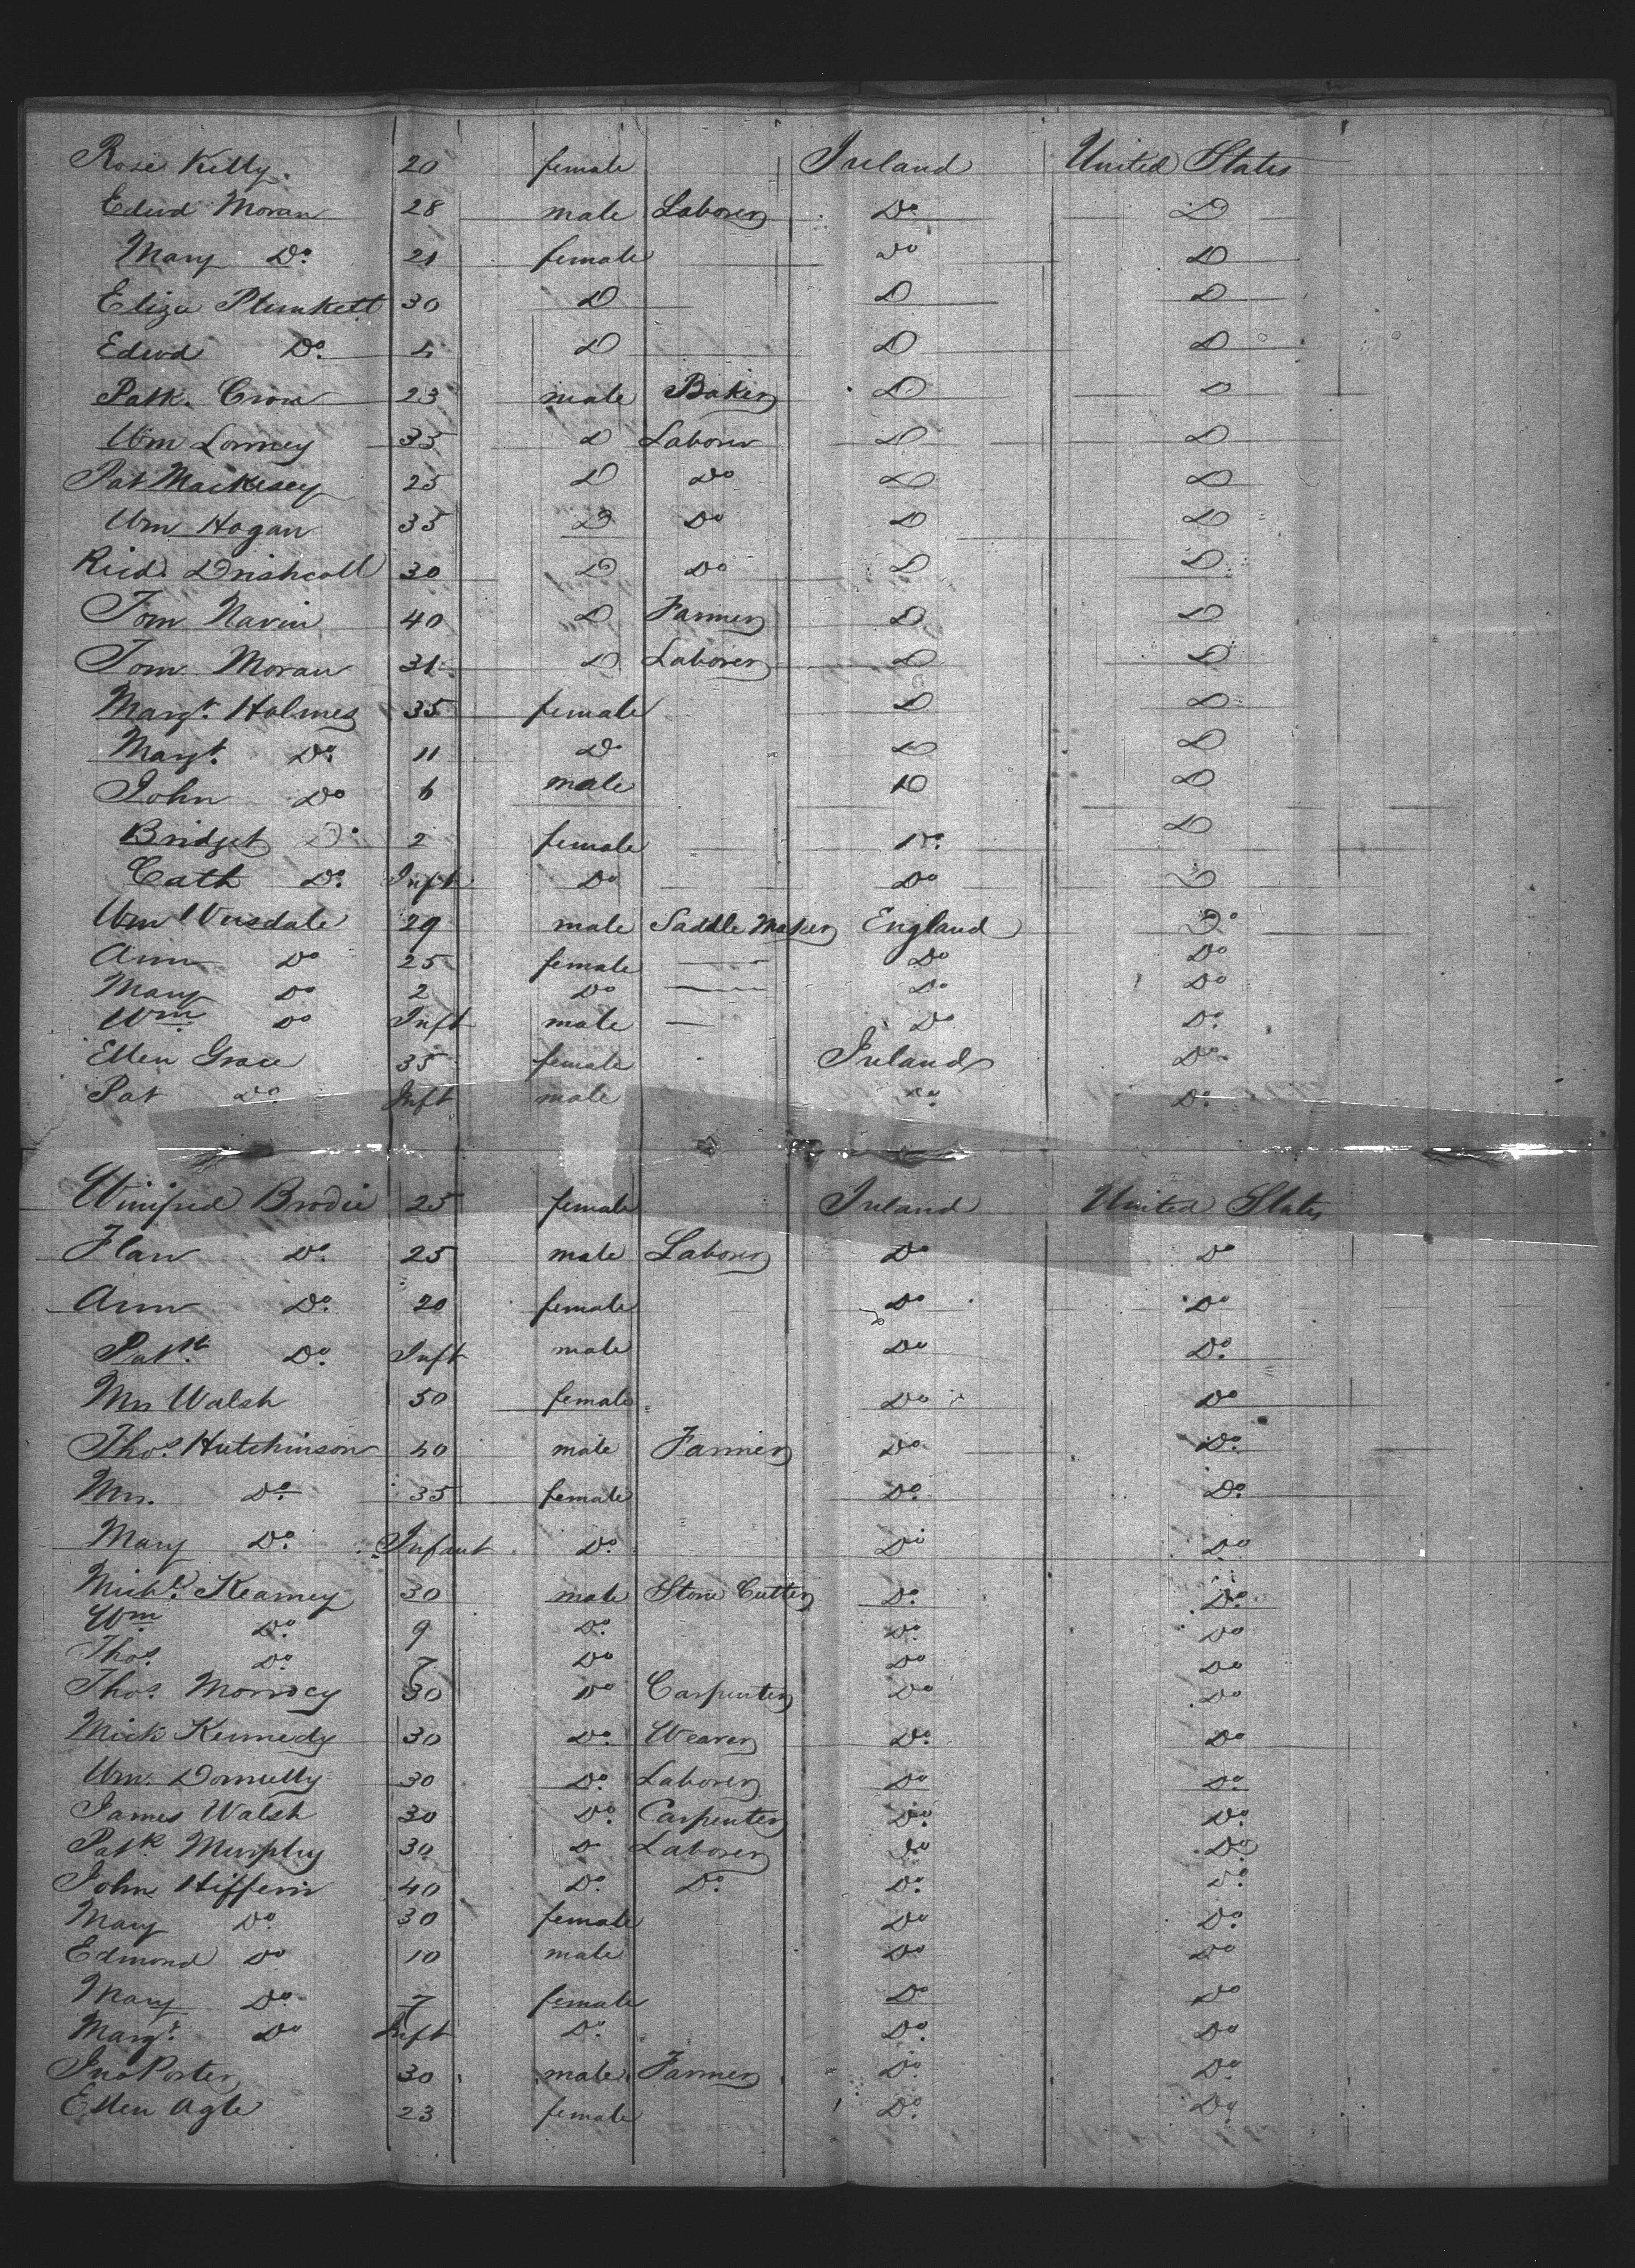 Rose Kelly. 20 female Ireland United States
Edwd Moran 28 male Laborer Do Do
Mary Do. 21 female Do Do
Eliza Plunkett 30 Do Do Do
Edwd Do. 4 Do Do Do
Patk. Crow 23 male Baker Do Do
Wm Lonney 35 Do Laborer Do Do
Pat Mackesey 25 Do Do Do Do
Wm Hogan 35 Do Do Do Do
Ricd. Drishcoll 30 Do Do Do Do
Tom Navin 40 Do Farmer Do Do
Tom Moran 31 Do Laborer Do Do
Margt. Holmes 35 female Do Do
Margt. Do. 11 Do Do Do
John Do 6 male Do Do
Bridget Do. 2 female Do. Do
Cath Do. Inft Do Do Do
Wm Versdale 29 male Saddle Maker England Do
Ann Do 25 female — Do Do
Mary Do 2 Do — Do Do
Wm Do Inft male — Do Do.
Ellen Grace 35 female Ireland Do
Pat Do. Inft male Do Do.
Winifred Brodie 25 female Ireland United States
Flan Do. 25 male Laborer Do Do
Ann Do. 20 female Do Do
Patk. Do. Inft male Do Do.
Mrs Walsh 50 female Do Do
Thos. Hutchinson 40 male Farmer Do Do.
Mrs. Do. 35 female Do. Do.
Mary Do. Infant Do. Do Do
Michl. Kearney 30 male Stone Cutter Do. Do.
Wm Do. 9 Do. Do. Do
Thos. Do. 7 Do Do Do
Thos. Morrocy 30 Do Carpenter Do Do
Mick Kennedy 30 Do. Weaver Do. Do
Wm. Donnelly 30 Do. Laborer Do Do.
James Walsh 30 Do. Carpenter Do. Do.
Patk. Murphy 30 Do Laborer Do. Do
John Hiffern 40 Do. Do. Do. Do.
Mary Do. 30 female Do Do.
Edmond Do 10 male Do Do
Mary Do. 7 female Do Do
Margt. Do Inft Do. Do. Do
Jno Porter 30 male Farmer Do Do.
Ellen Agle 23 female Do. Do